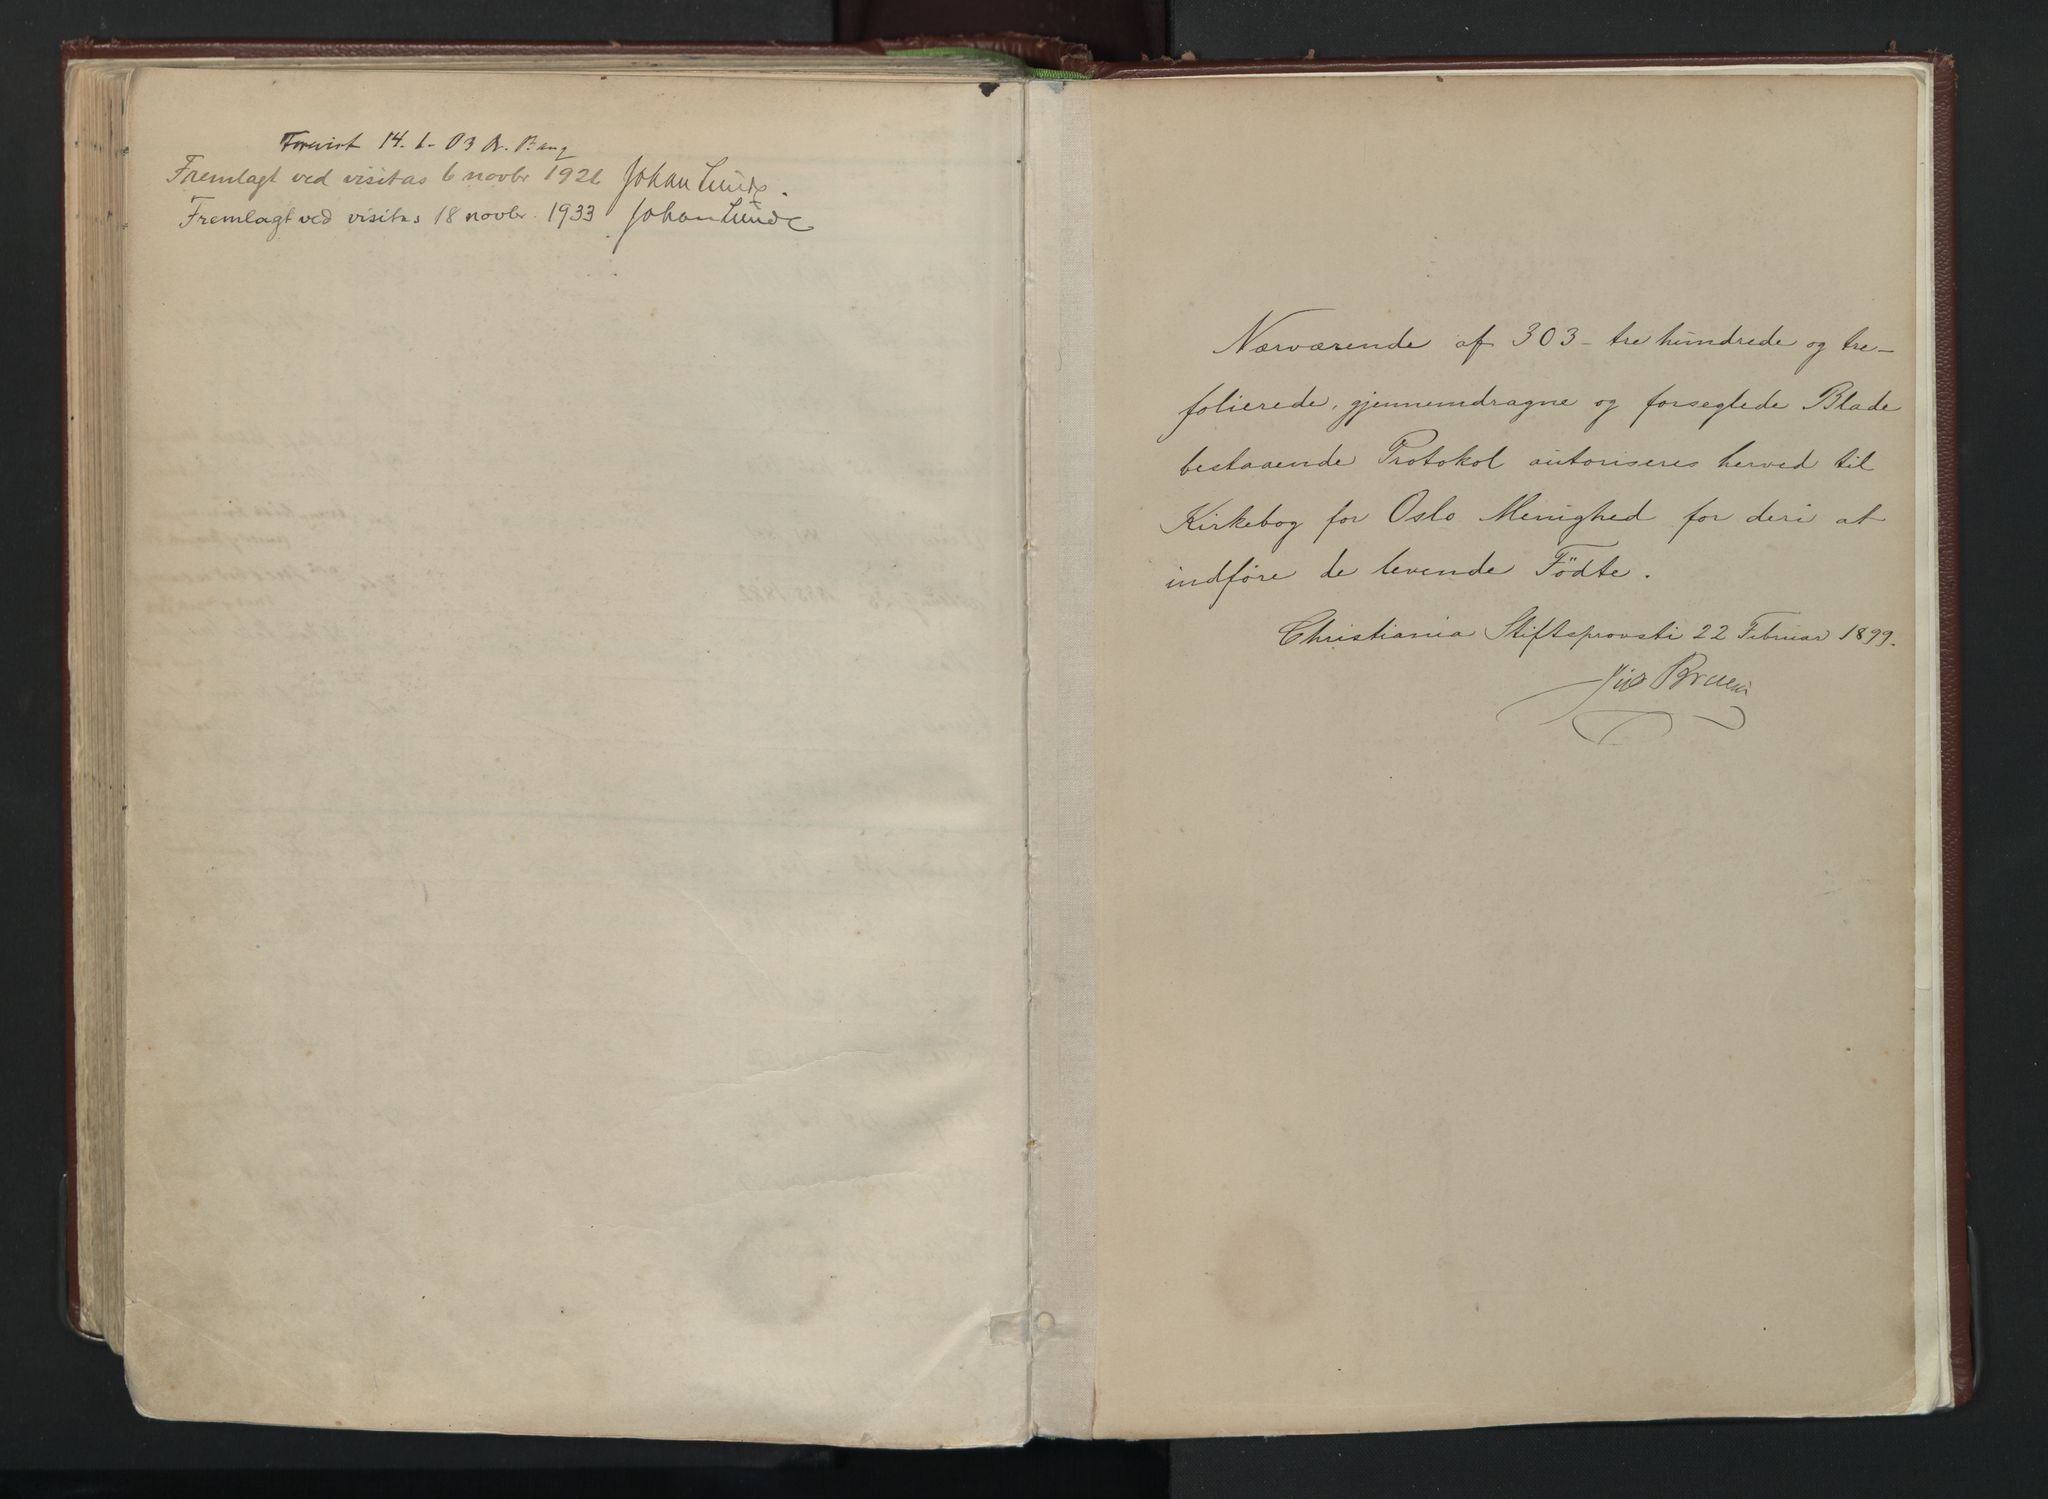 Forevist 14. 1. 03 A. Bang
Fremlagt ved visitas 6 novbr 1926 Johan Lunde.
Fremlagt ved visitas 18 novbr. 1933 Johan Lunde
Nærværende af 303 - tre hundrede og tre -
folierede, gjennemdragne og forseglede Blade
bestaaende Protokol autoriseres herved til
Kirkebog for Oslo Menighed for deri at
indføre de levende Födte.
Christiania Stiftsprovsti 22 Februar 1899.
Bruun